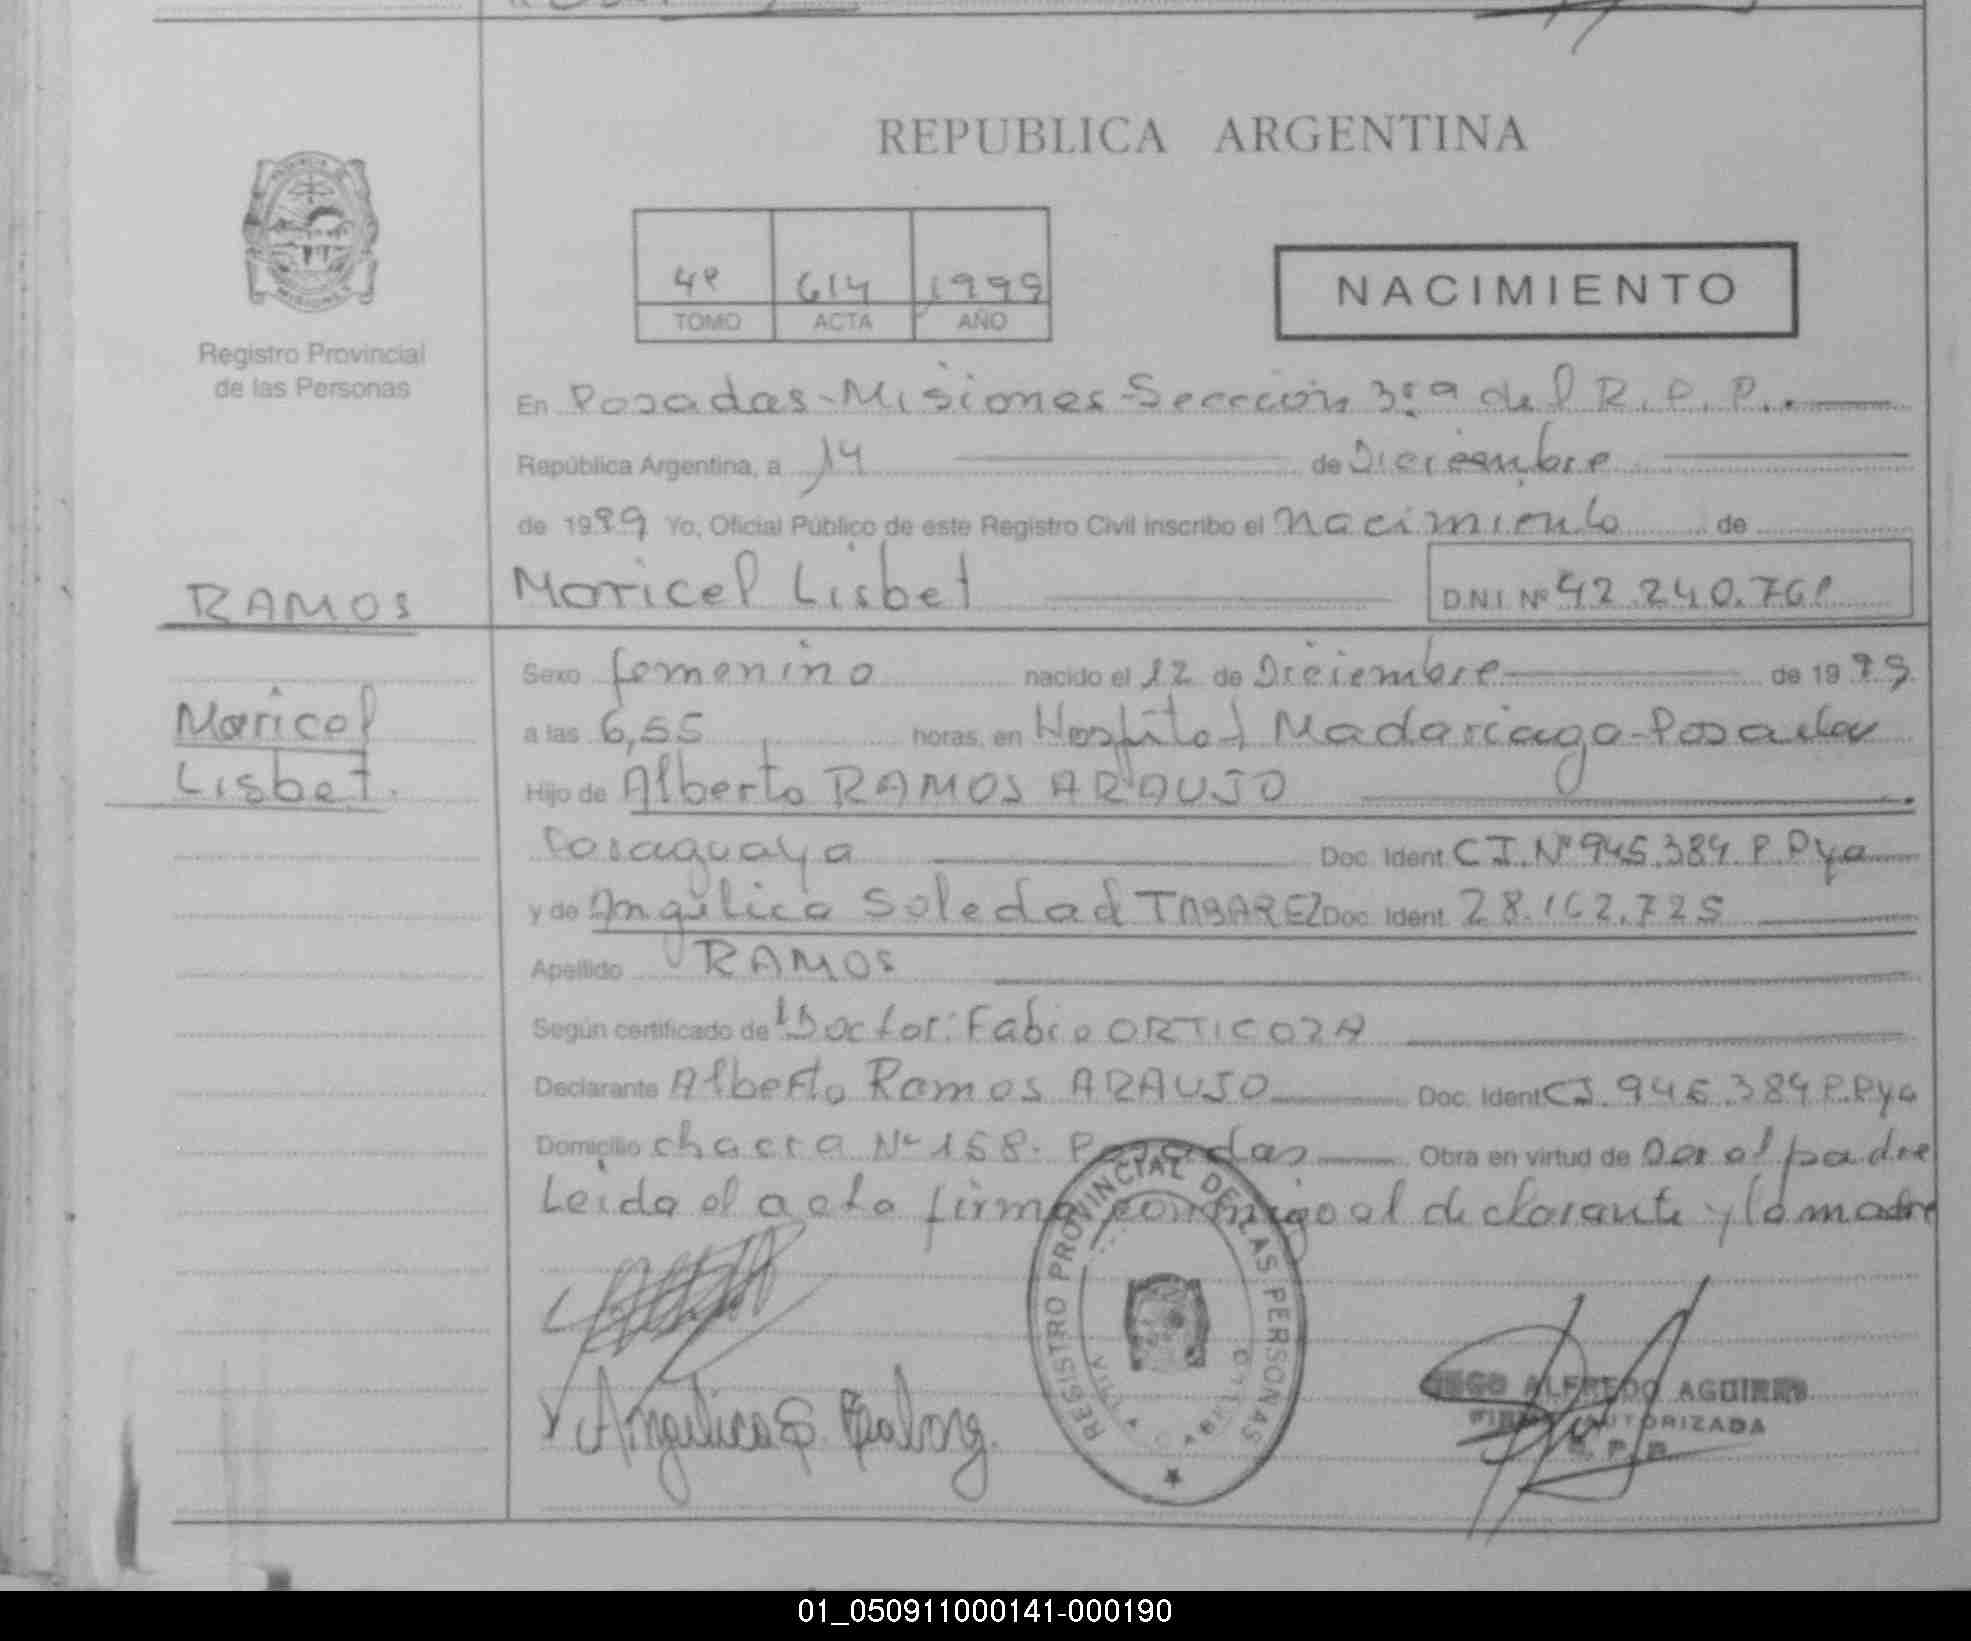 REPUBLICA ARGENTINA
4º 614 1999
TOMO ACTA AÑO
NACIMIENTO
Registro Provincial
de las Personas
En Posadas-Misiones-Seccion 3ra del R.P.P.
República Argentina, a 14 de Diciembre
de 1999 Yo, Oficial Público de este Registro Civil inscribo el nacimiento de
RAMOS
Maricel Lisbet
D.N.I. Nº 42.240.761
Maricel
Lisbet.
Sexo femenino nacido el 12 de Diciembre de 1999
a las 6,55 horas, en Hospital Madariaga-Posadas
Hijo de Alberto RAMOS ARAUJO
Paraguaya Doc. Ident. CI.Nº 945.384.P.Pya
y de Angelica Soledad TABAREZ Doc. Ident. 28.162.725
Apellido RAMOS
Según certificado de Doctor: Fabio ORTIGOZA
Declarante Alberto Ramos ARAUJO Doc. Ident CI. 945.384 P.Pya
Domicilio chacra Nº 158. Posadas Obra en virtud de ser el padre
Leida el acta firma conmigo el declarante y la madre
REGISTRO PROVINCIAL DE LAS PERSONAS
Angelica S.
ALFREDO AGUIRRE
FIRMA AUTORIZADA
R.P.P.
01_050911000141-000190